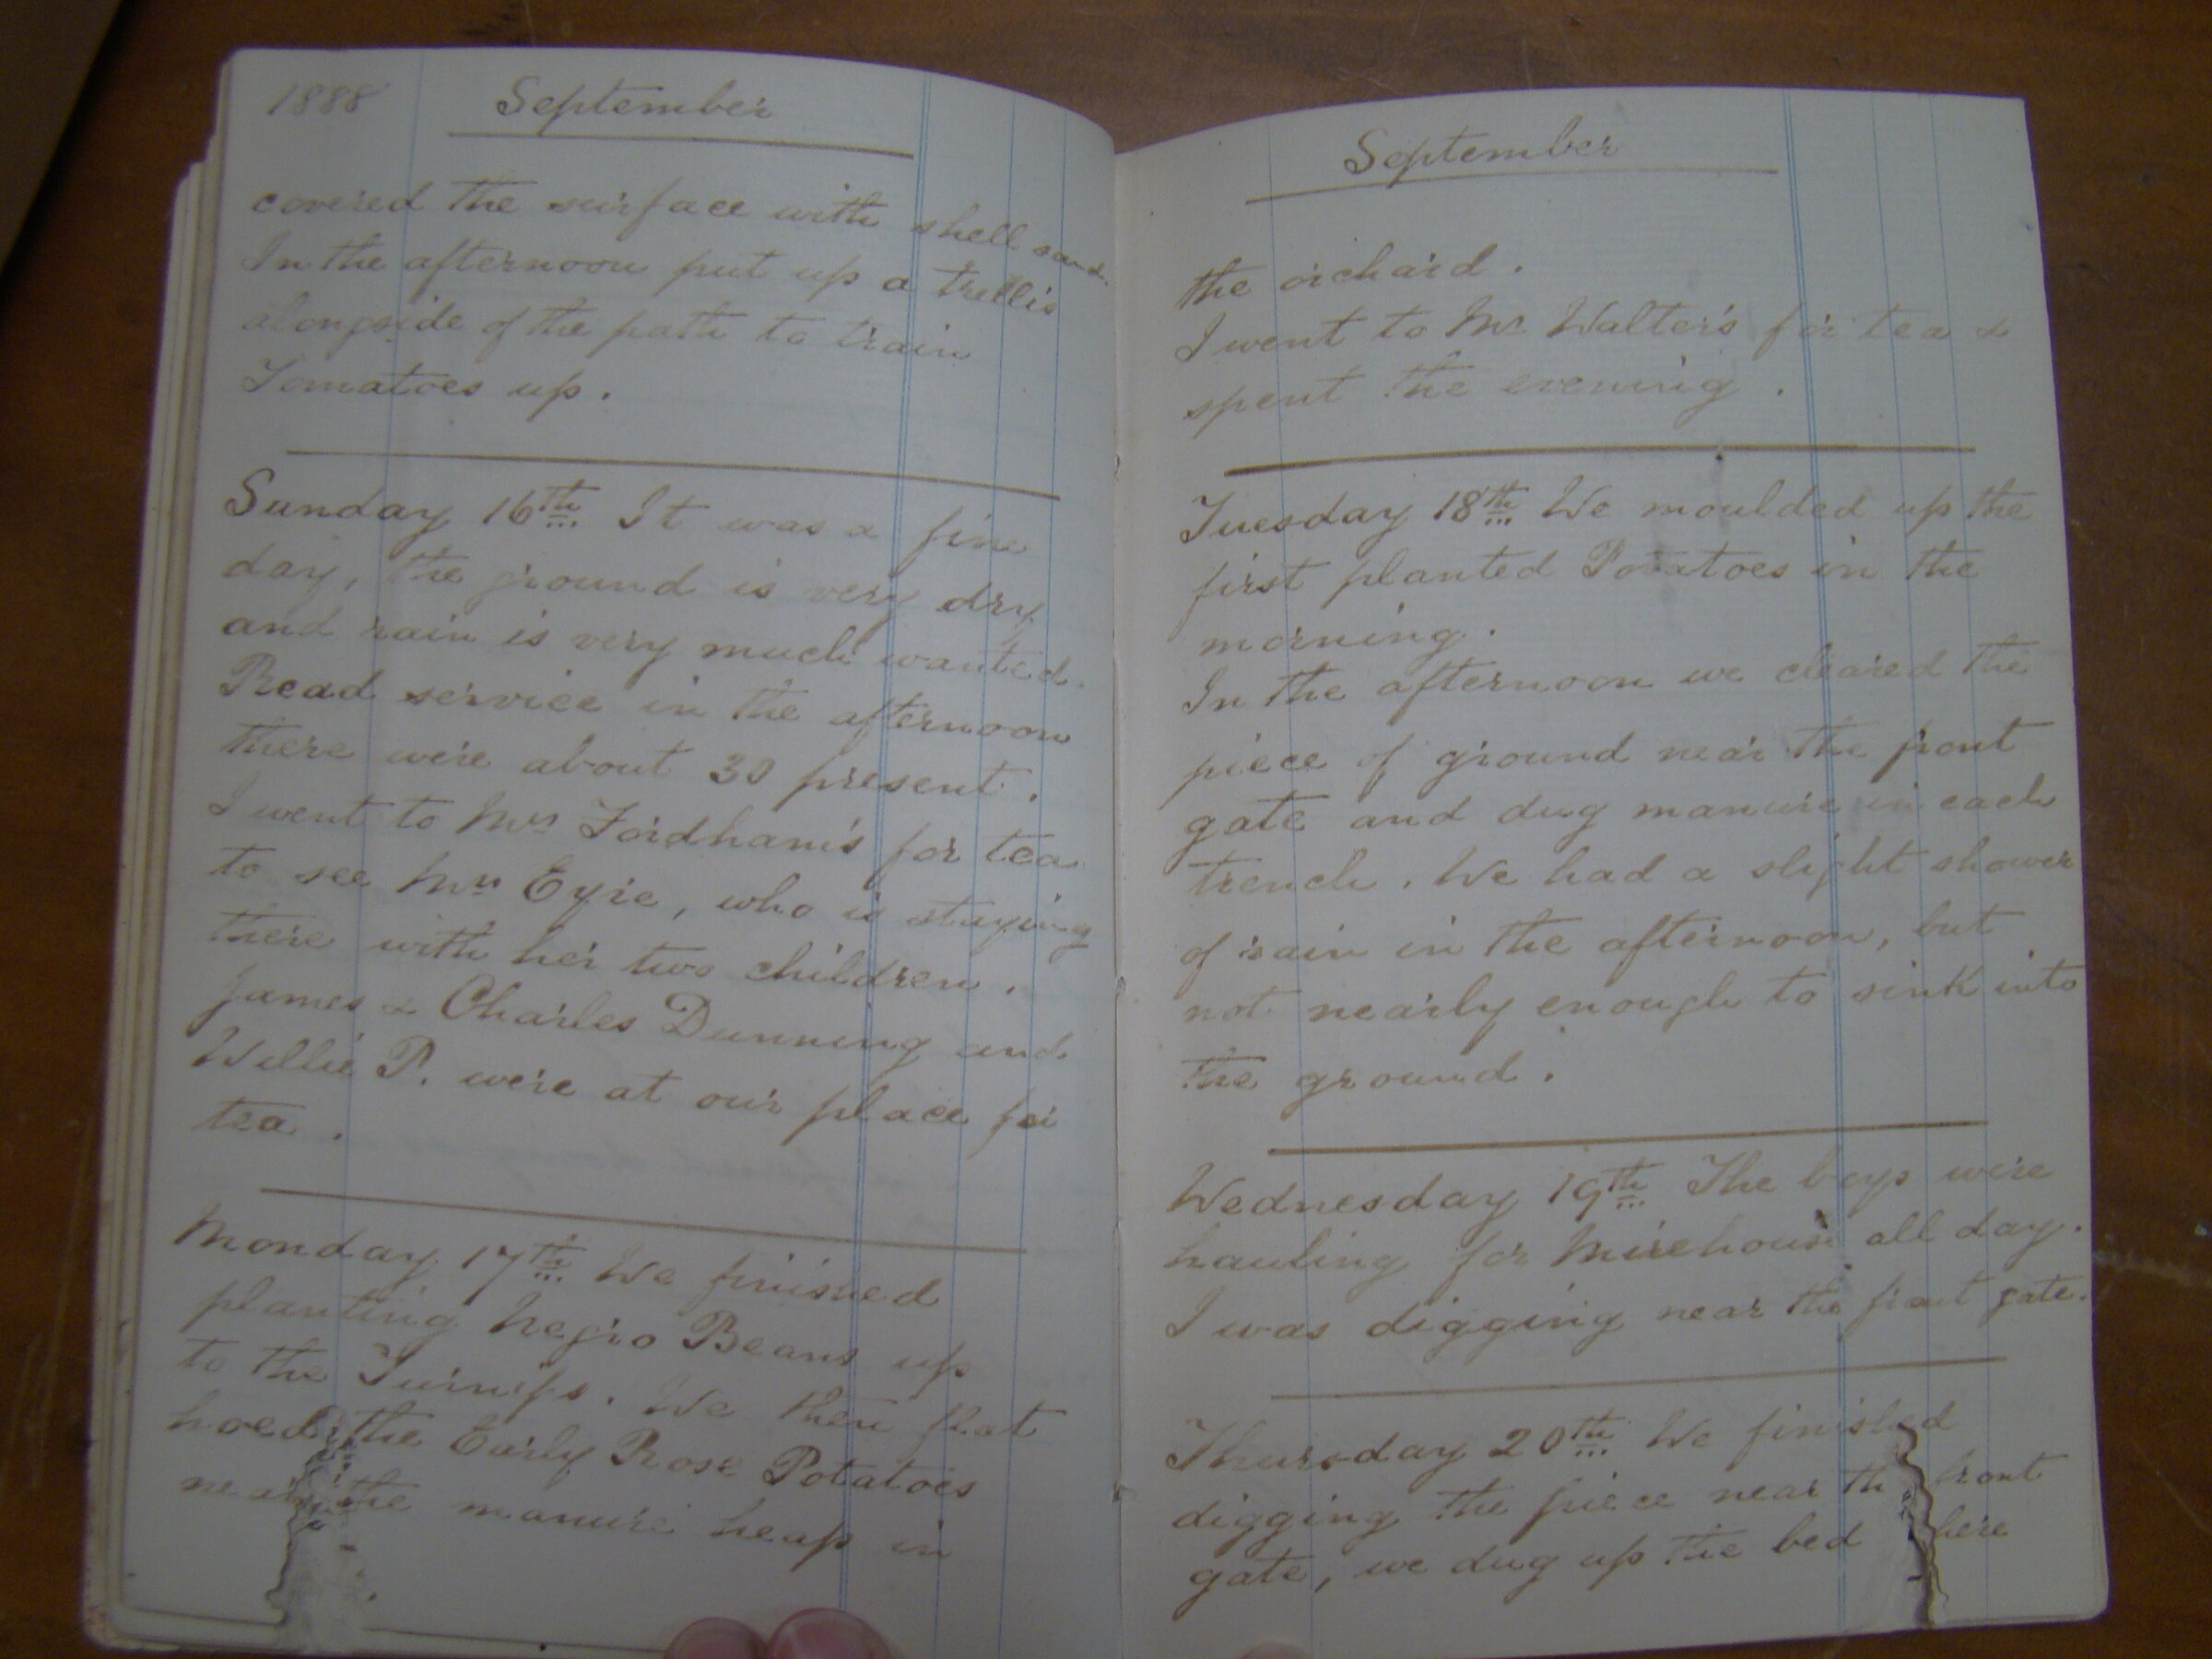 1888 September
covered the surface with shell sand.
In the afternoon put up a trellis
alongside of the path to train
Tomatoes up.
Sunday 16th It was a fine
day, the ground is very dry
and rain is very much wanted.
Read service in the afternoon
there were about 30 present.
I went to Mrs Fordham's for tea
to see Mrs Eyre, who is staying
there with her two children.
James & Charles Dunning and
Willie P. were at our place for
tea.
Monday 17th We finished
planting Negro Beans up
to the Turnips. We then flat
hoed the Early Rose Potatoes
near the manure heap in
September
the orchard.
I went to Mr Walter's for tea &
spent the evening.
Tuesday 18th We moulded up the
first planted Potatoes in the
morning.
In the afternoon we cleared the
piece of ground near the front
gate and dug manure in each
trench. We had a slight shower
of rain in the afternoon, but
not nearly enough to sink into
the ground.
Wednesday 19th The boys were
hauling for Mirehouse all day.
I was digging near the front gate.
Thursday 20th We finished
digging the piece near the front
gate, we dug up the bed here